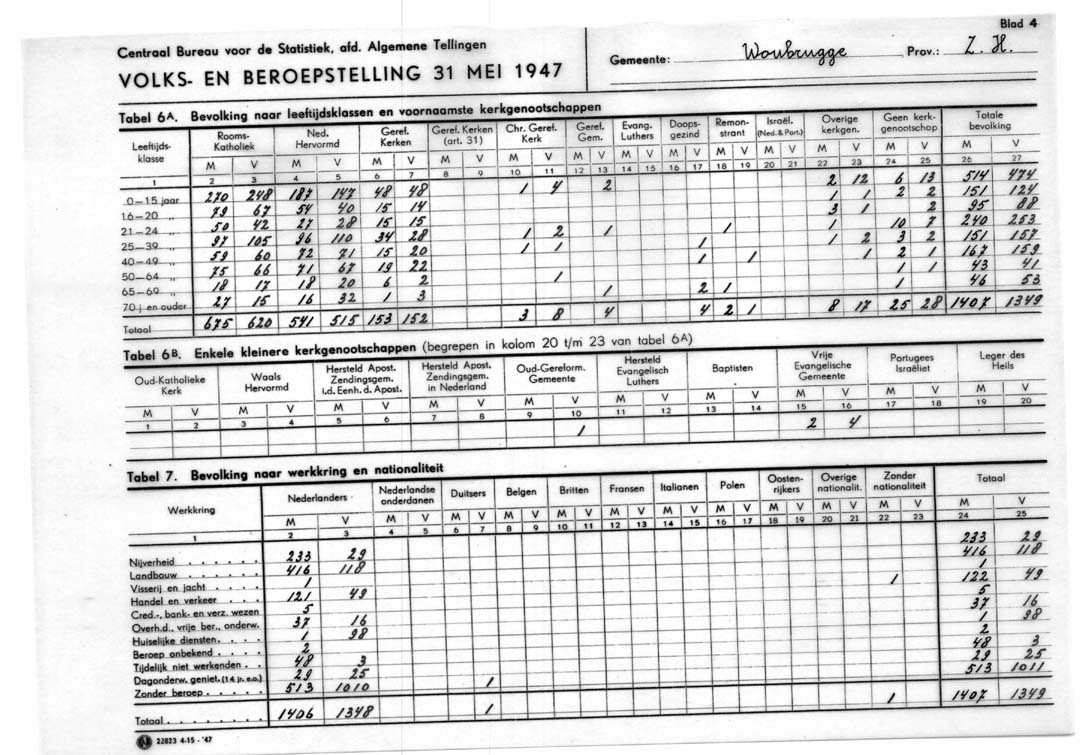 Blad 4
Centraal Bureau voor de Statistiek, afd. Algemene Tellingen
VOLKS- EN BEROEPSTELLING 31 MEI 1947
Gemeente: Woubrugge Prov.: Z. H.
Tabel 6A. Bevolking naar leeftijdsklassen en voornaamste kerkgenootschappen
Leeftijds- klasse Rooms- Katholiek Ned. Hervormd Geref. Kerken Geref. Kerken (art. 31) Chr. Geref. Kerk Geref. Gem. Evang. Luthers Doops- gezind Remon- strant Israël. (Ned. & Port.) Overige kerkgen. Geen kerk- genootschap Totale bevolking
M V M V M V M V M V M V M V M V M V M V M V M V M V
1 2 3 4 5 6 7 8 9 10 11 12 13 14 15 16 17 18 19 20 21 22 23 24 25 26 27
0—15 jaar 270 248 187 147 48 48 1 4 2 2 12 6 13 514 474
16—20 „ 79 67 54 40 15 14 1 1 2 2 151 124
21—24 „ 50 42 27 28 15 15 3 1 2 95 88
25—39 „ 97 105 96 110 34 28 1 2 1 1 1 10 7 240 253
40—49 „ 59 60 72 71 15 20 1 1 1 1 2 3 2 151 157
50—64 „ 75 66 71 67 19 22 1 1 1 2 1 167 159
65—69 „ 18 17 18 20 6 2 1 1 1 43 41
70 j en ouder 27 15 16 32 1 3 1 2 1 1 46 53
Totaal 675 620 541 515 153 152 3 8 4 4 2 1 8 17 25 28 1407 1349
Tabel 6B. Enkele kleinere kerkgenootschappen (begrepen in kolom 20 t/m 23 van tabel 6A)
Oud-Katholieke Kerk Waals Hervormd Hersteld Apost. Zendingsgem. i.d. Eenh. d. Apost. Hersteld Apost. Zendingsgem. in Nederland Oud-Gereform. Gemeente Hersteld Evangelisch Luthers Baptisten Vrije Evangelische Gemeente Portugees Israëliet Leger des Heils
M V M V M V M V M V M V M V M V M V M V
1 2 3 4 5 6 7 8 9 10 11 12 13 14 15 16 17 18 19 20
1 2 4
Tabel 7. Bevolking naar werkkring en nationaliteit
Werkkring Nederlanders Nederlandse onderdanen Duitsers Belgen Britten Fransen Italianen Polen Oosten- rijkers Overige nationalit. Zonder nationaliteit Totaal
M V M V M V M V M V M V M V M V M V M V M V M V
1 2 3 4 5 6 7 8 9 10 11 12 13 14 15 16 17 18 19 20 21 22 23 24 25
Nijverheid . . . . . . 233 29 233 29
Landbouw . . . . . . 416 118 416 118
Visserij en jacht . . . . 1 1
Handel en verkeer . . . 121 49 1 122 49
Cred.-, bank- en verz. wezen 5 5
Overh.d., vrije ber., onderw. 37 16 37 16
Huiselijke diensten. . . . 1 98 1 98
Beroep onbekend . . . . 2 2
Tijdelijk niet werkenden . . 48 3 48 3
Dagonderw. geniet. (14 jr. e.o.) 29 25 29 25
Zonder beroep . . . . . 513 1010 1 513 1011
Totaal . . . . . . . . 1406 1348 1 1 1407 1349
22823 4-15 - '47